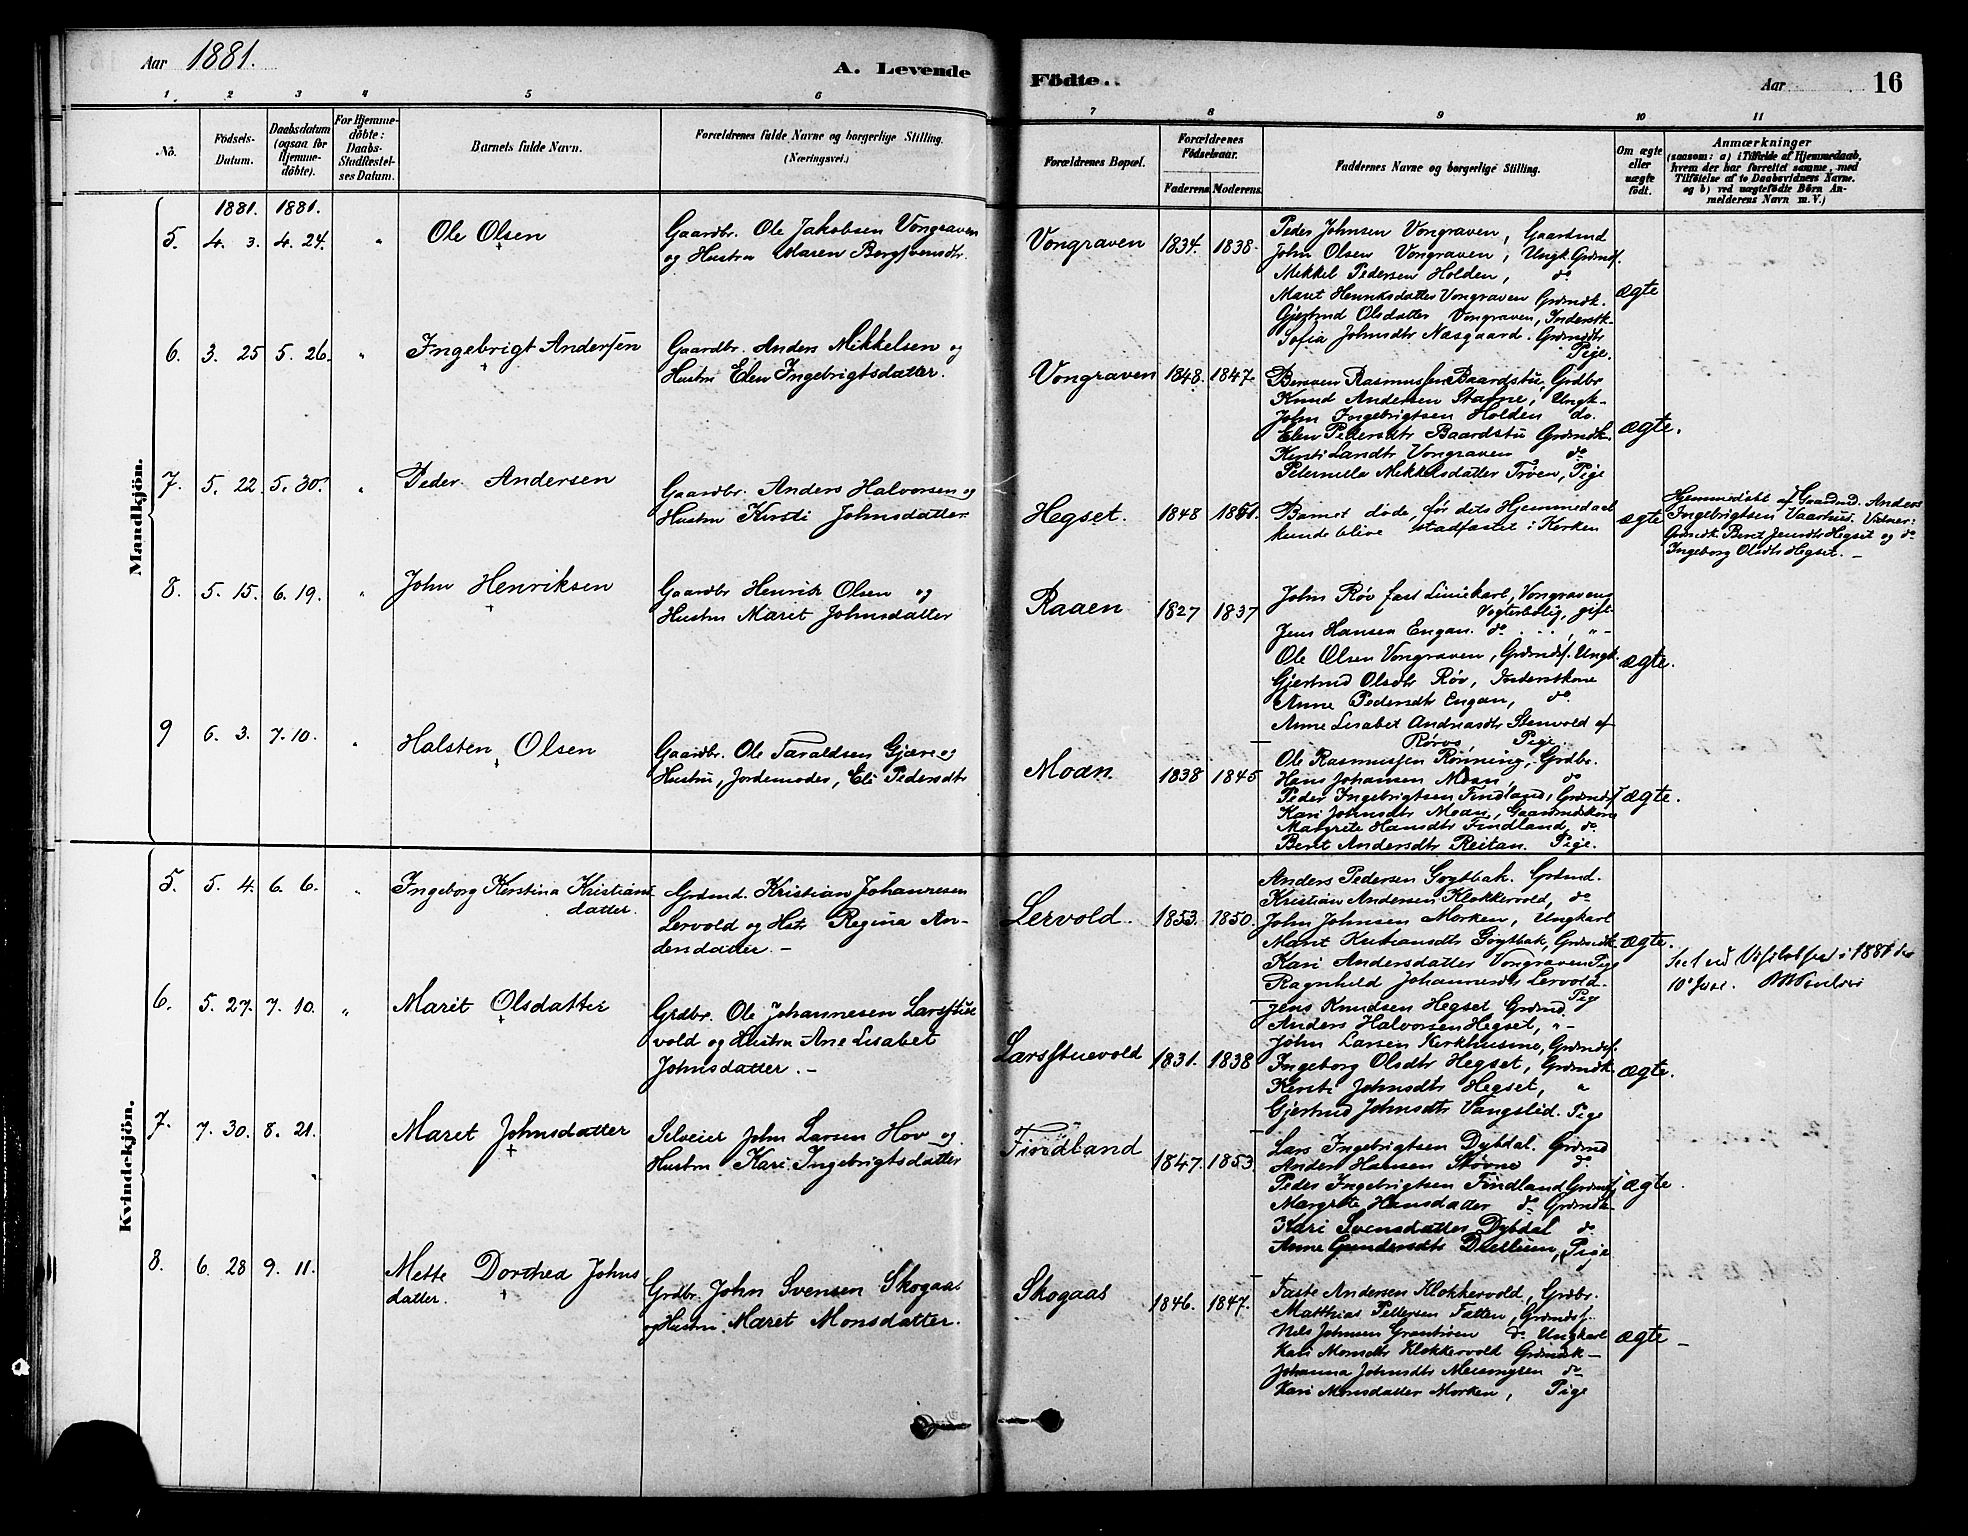 Aar 1881.
A. Levende
Födte.
Aar
16
1.
2
3
4
5
6
7
8
9
10
11
No.
Födsels-
Datum.
Daabsdatum
(ogsaa for
Hjemme-
döbte).
For Hjemme-
döbte:
Daabs-
Stadfæstel-
ses Datum.
Barnets fulde Navn.
Forældrenes fulde Navne og borgerlige Stilling.
(Næringsvei.)
Forældrenes Bopæl.
Forældrenes
Födselsaar.
Faderens
Moderens.
Faddernes Navne og borgerlige Stilling.
Om ægte
eller
uægte
födt.
Anmærkninger
(saasom: a) i Tilfælde af Hjemmedaab,
hvem der har forrettet samme, med
Tilföielse af to Daabsvidners Navne.
og b) ved uægtefödte Börn An-
melderens Navn m. V.)
Mandkjön.
1881. 1881.
5. 4. 3. 4. 24. "
Ole Olsen
Gaardbr. Ole Jakobsen Vongraven
og Hustru Maren Bergsvendtr.
Vongraven 1834. 1838.
Peder Johnsen Vongraven, Gaardmd
John Olsen Vongraven, Ungk. Grdmdf.
Mikkel Pedersen Holden, do
Maret Henriksdatter Vongraven Grdmdk.
Gjertrud Olsdatter Vongraven, Inderstk.
Sofia Johnsdtr Næsgaard. Grdmdtr
Pige.
ægte
6. 3. 25 5. 26. "
Ingebrigt Andersen
Gaardbr. Anders Mikkelsen og
Hustru Elen Ingebrigtsdatter.
Vongraven 1848. 1847.
Rasmussen Baardstu, Grdbr
Knud Andersen Stavne, Ungk.
John Ingebrigtsen Holden do.
Elen Pedersdtr Baardstu Grdmdk.
Kersti Larsdtr Vongraven do
Peternella Mikkelsdatter Trøen, Pige
ægte.
7. 5. 22. 5. 30. "
Peder Andersen
Gaardbr. Anders Halvorsen og
Hustru Kirsti Johnsdatter
Hegset. 1848 1851.
Barnet døde, før dets Hjemmedaab
kunde blive stadfæstet i Kirken
ægte
Hjemmedøbt af Gaardmd. Anders
Ingebrigtsen Vaarhus. Vidner:
Grdmdk. Beret Jensdtr Hegset og do
Ingeborg Olsdtr Hegset. –
8. 5. 15. 6. 19. "
John Henriksen
Gaardbr Henrik Olsen og
Hustru Marit Johnsdatter
Raaen 1827 1837
John Røv fast Liniekarl, Vongravens
Vogterbolig, gift
Jens Hansen Engan. do . . . , " –
Ole Olsen Vongraven, Grdmdf. Ungk.
Gjertrud Olsdtr Røv, Inderstkone
Anne Pedersdtr Engan, do
Anne Lisabet Andreasdtr Stenvold af
Røros, Pige.
ægte.
9 6. 3. 7. 10. "
Halsten Olsen
Gaardbr. Ole Taraldsen Gjære og
Hustru, Jordemoder, Eli Pedersdtr
Moan 1838 1845
Ole Rasmussen Rönning, Grdbr.
Hans Johansen Moan, do
Peder Ingebrigtsen Findland, Grdmdsf
Kari Johnsdtr Moan, Gaardmdskone
Margrete Hansdtr Findland, do.
Beret Andersdtr Reitan. Pige.
ægte.
Kvindekjön.
5. 5. 4. 6. 6. "
Ingeborg Kerstina Kristians
datter.
Grdmd. Kristian Johannesen
Lervold og Hstr Regina An-
dersdatter –
Lervold. 1853. 1850.
Anders Pedersen Grdmd.
Kristian Andersen Klokkervold, do
John Johnsen Morken, Ungkarl
Marit Kristiansdtr Grdmdk
Kari Andersdatter Vongraven Pige
Ragnhild Johannesdtr Lervold.
Pige
ægte.
Seet ved i 1881 den
10. Juni.
6. 5. 27. 7. 10. "
Marit Olsdatter
Grdbr. Ole Johannesen Larsstue
vold og Hustru Ane Lisabet
Johnsdatter. –
Larsstuevold 1831. 1838
Jens Knudsen Hegset Grdmd.
Anders Halvorsen Hegset, " –
John Larsen Kirkhusmo, Grdmdsf.
Ingeborg Olsdtr Hegset, Grdmdk.
Kersti Johnsdtr Hegset, "
Gjertrud Johnsdtr Vangslid. Pige
ægte.
7. 7. 30. 8. 21.
Maret Johnsdatter
Selveier John Larsen Hov og
Hustru Kari Ingebrigtsdatter
Findland 1847. 1853
Lars Ingebrigtsen Dybdal. Grdmd
Anders Hansen Støvne do
Peder Ingebrigtsen Findland Grdmdsf.
Margrete Hansdatter do Grdmdk.
Kari Svensdatter Dybdal do
Anne Gundersdtr Pige
ægte.
8. 6. 28 9. 11.
Mette Dorthea Johns
datter.
Grdbr. John Svensen Skogaas
og Hustru Maret Monsdatter.
Skogaas 1846. 1847.
Faste Andersen Klokkervold, Grdbr.
Matthias Pettersen Fatten, Grdmdsf.
Nils Johnsen Grantrøen do Ungkarl
Kari Monsdtr Klokkervold Grdmdk –
Johanna Johnsdtr do
Kari Monsdatter Morken, Pige
ægte –